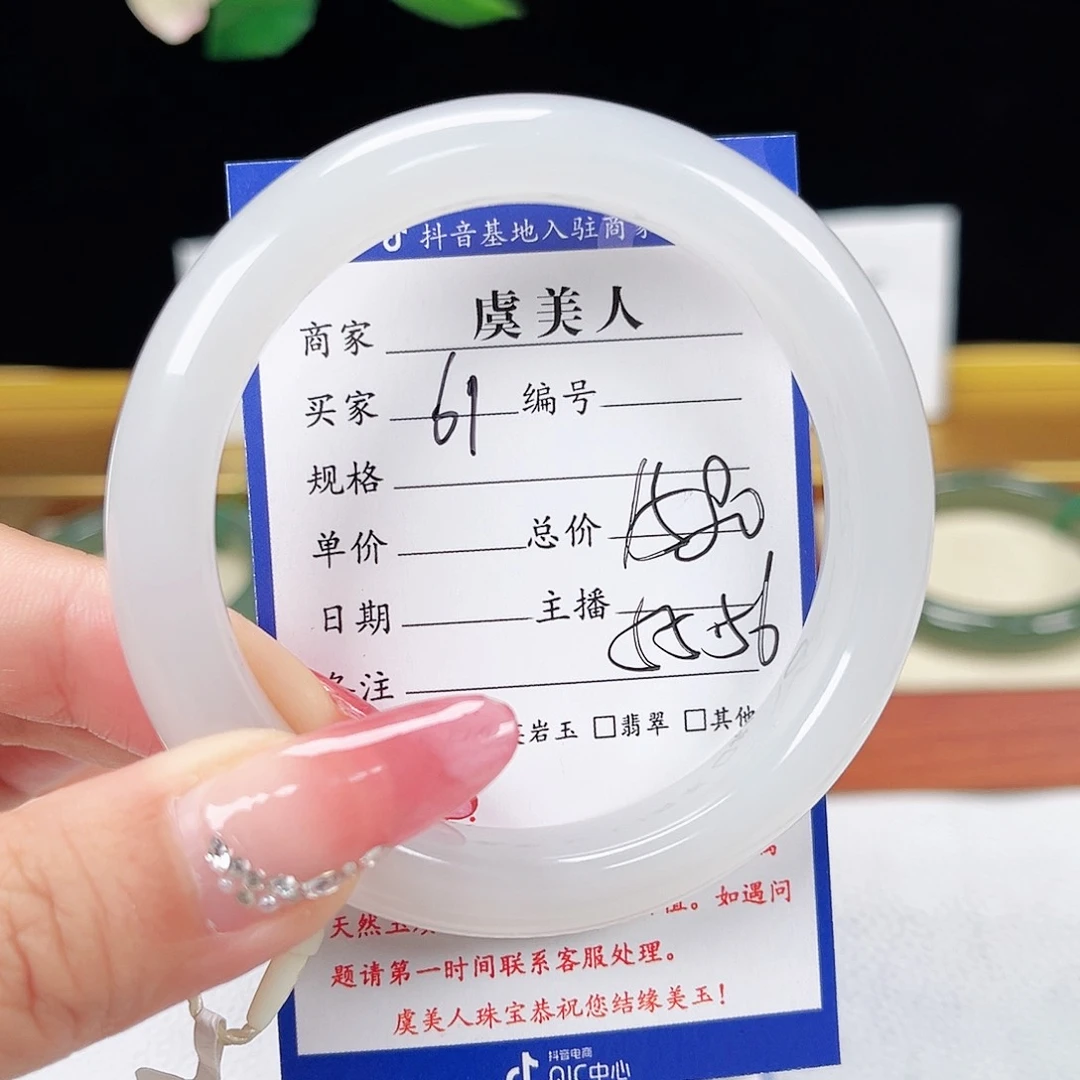 抖音基地入驻商家
商家 虞美人
买家 61 编号
规格
单价 总价
日期 主播
备注
岩玉 □翡翠 □其他
天然玉
值。如遇问
题请第一时间联系客服处理。
虞美人珠宝恭祝您结缘美玉!
抖音电商
QIC中心